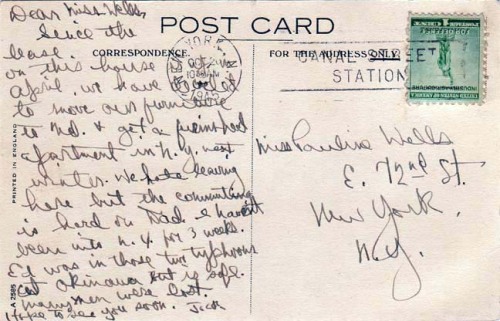 POST CARD
CORRESPONDENCE.
FOR THE ADDRESS ONLY.
CANAL STREET
STATION
PRINTED IN ENGLAND
A 2585
Dear Miss Wells,
Since the
lease
on this house
April, we have
to move our furniture
to Md. & get a furnished
apartment in N.Y. next
winter. We hate leaving
here but the commuting
is hard on Dad. I haven't
been into N.Y. for 3 weeks.
Ed was in those two typhoons
at Okinawa but is safe.
Many men were lost.
Hope to see you soon.
Miss Pauline Wells
E. 72nd St.
New York,
N.Y.